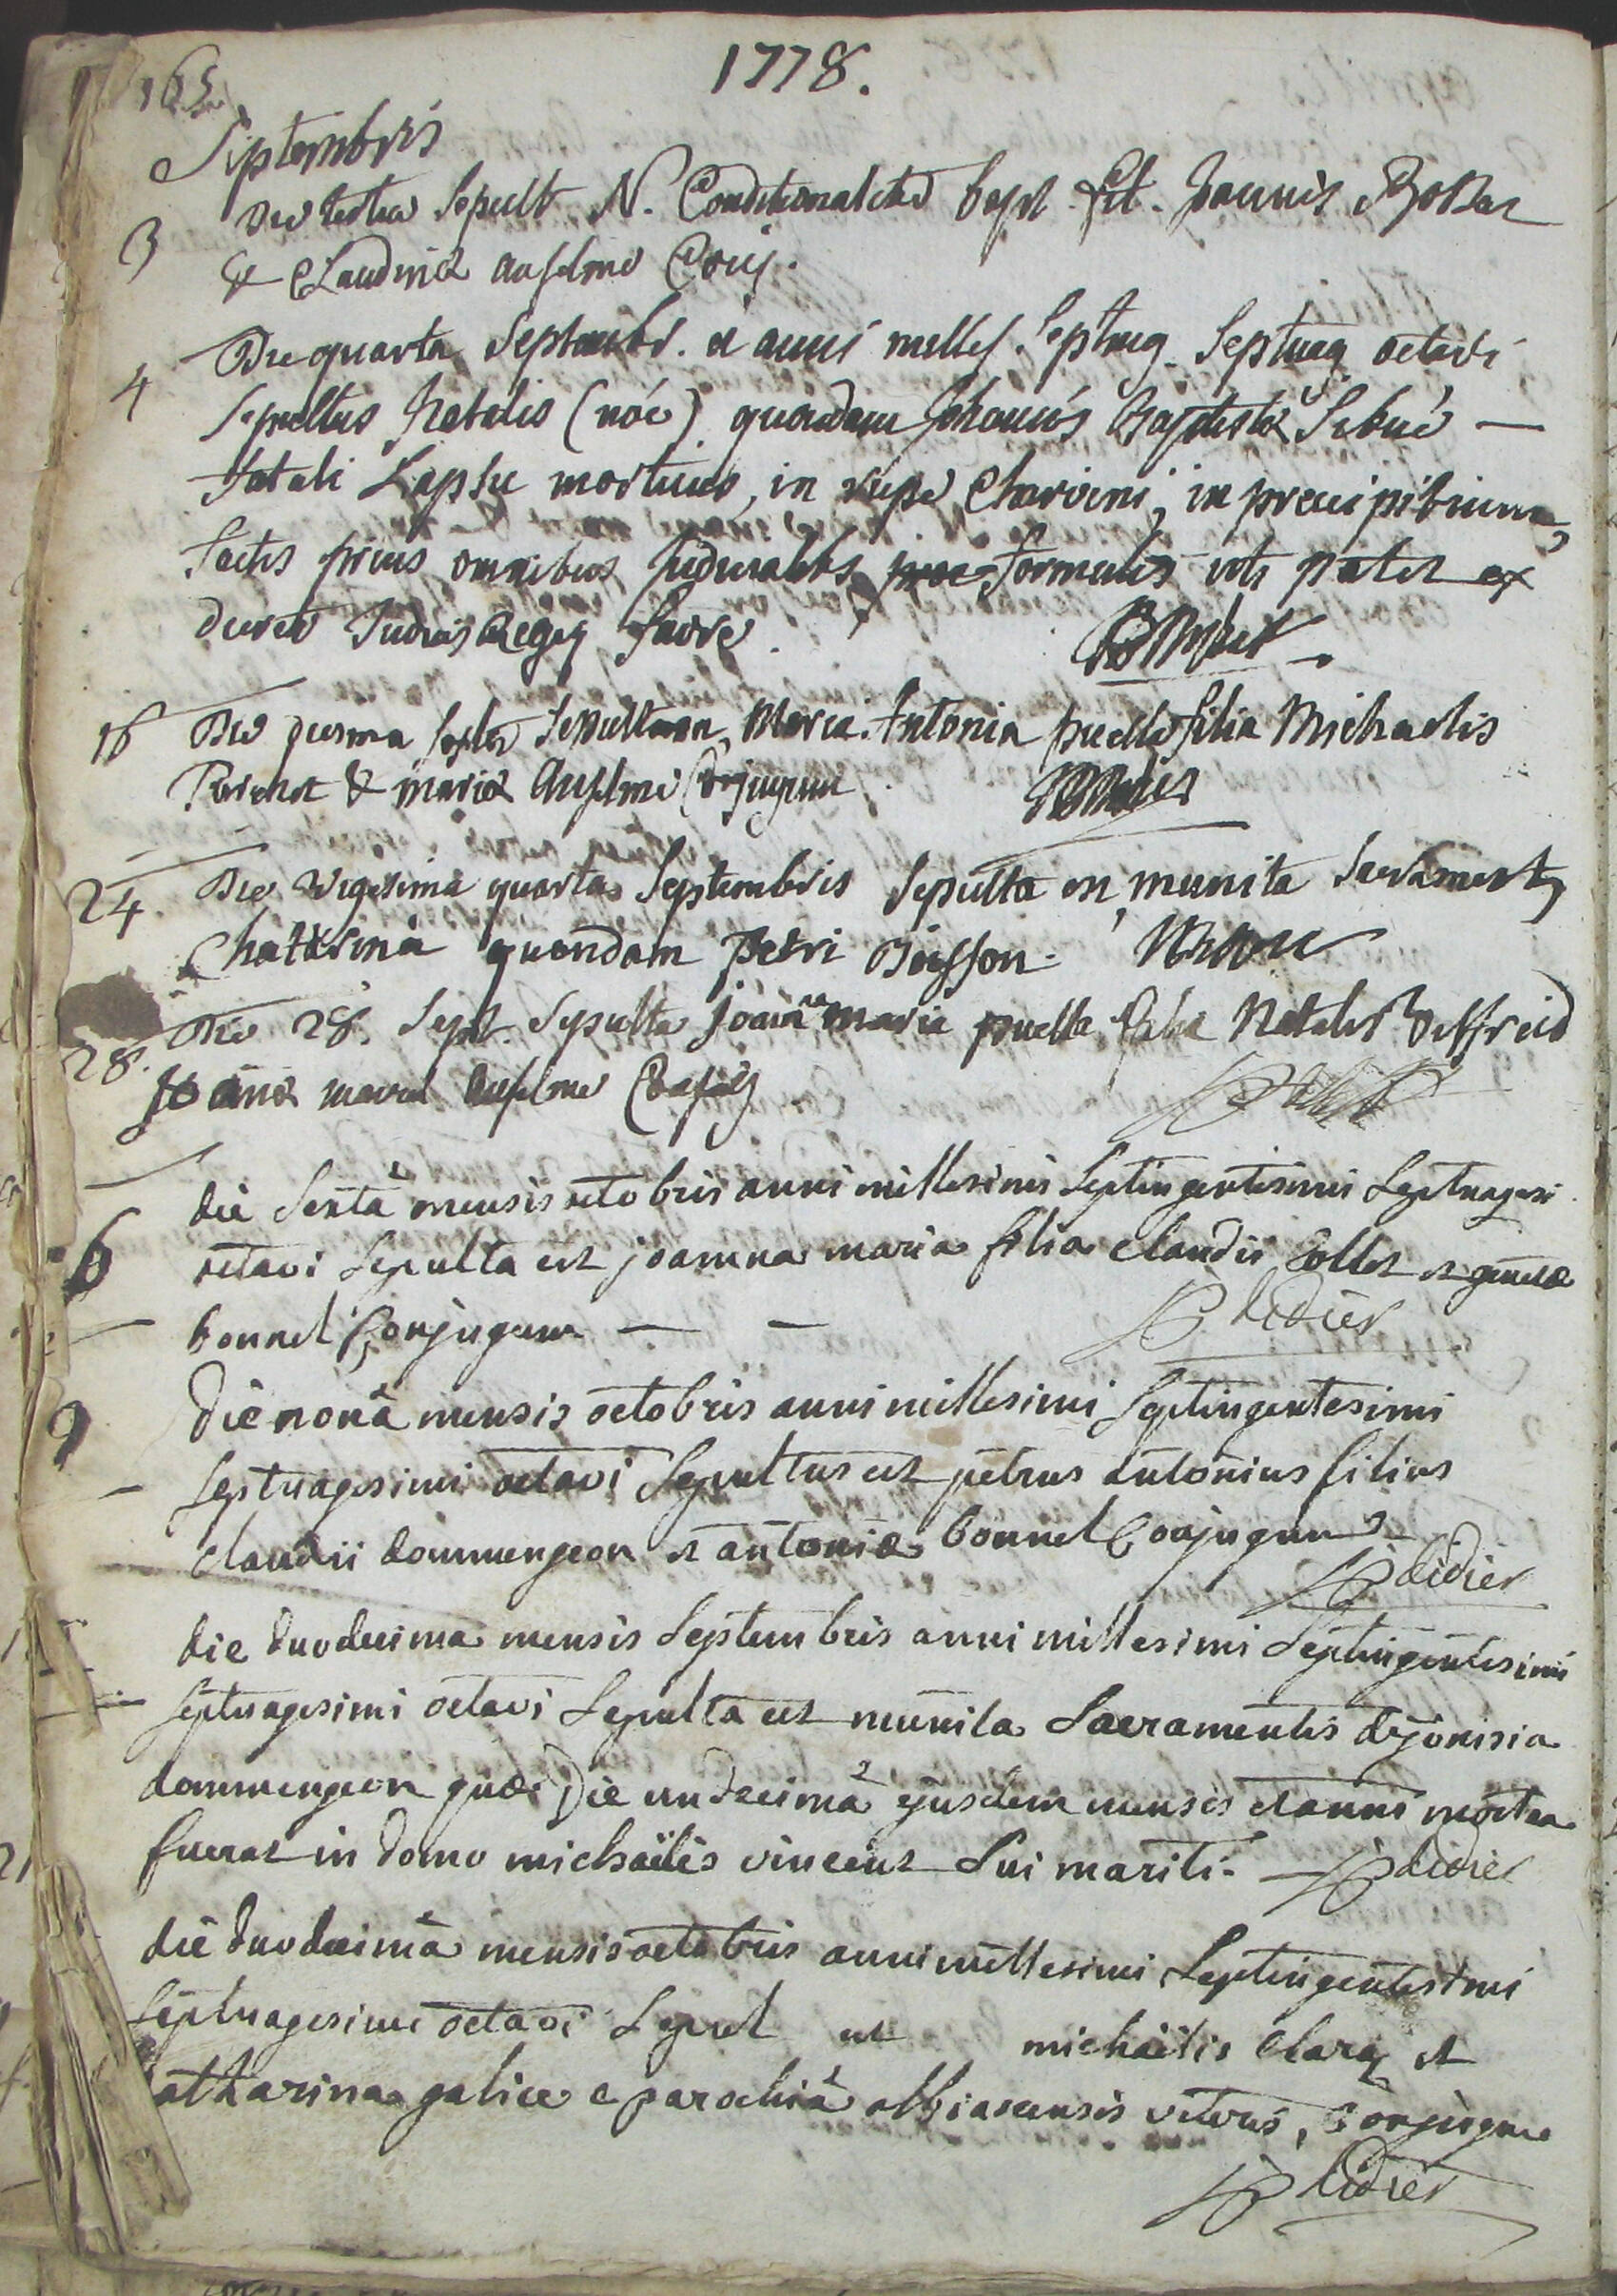 1778.
165
Septembris
3 Die tertia Sepult N. Conditionalité bapt fil. Joannis
& Claudinæ anselme Conj.
4 Die quarta Septembr. a anni milles. Septing. Septuag octavi
Sepultus Natalis (nôe) quondam Johannis Baptistæ
fatali Lapsu mortuus, in rupe Charvini, in precipitium,
factis prius omnibus Judicialibs formulis uti patet ex
Judicis favre.
16 Die Septēr Sepulta Maria Antonia puella filia Michaelis
& mariæ Anselme Conjugum
24 Die vigesima quarta Septembris Sepulta est, munita Sacrament,
Chatarina quondam Petri Bisson.
28. Die 28. Sept. Sepulta joanna maria puella filia Natalis
Joanæ anselme
6 die Sexta mensis octobris anni millesimi Septingentesimi Septuagesi
octavi Sepulta est joanna maria filia claudii Collet et
bonnet Conjugum — —
JP didier
9 Die nonâ mensis octobris anni millesimi Septingentesimi
Septuagesimi octavi Sepultus est petrus antonius filius
claudii dommengeon et antoniæ bonnet Conjugum
JP didier
die duodecima mensis Septembris anni millesimi Septingentesimi
Septuagesimi octavi Sepulta est munita Sacramentis dyonisia
dommengeon quæ Die undecimâ ejusdem mensis et anni mortua
fuerat in domo michaëlis vincent Sui mariti. JP didier
die duodecimâ mensis octobris anni millesimi Septingentesimi
Septuagesimi octavi Sepul est michaëlis claraz et
catharina galice e parochiâ albiascensis veteris, Conjugum
JP didier